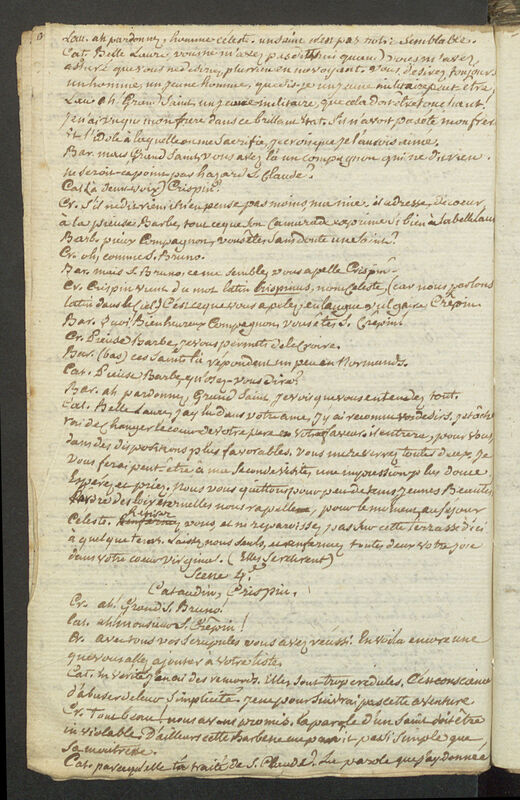 Lau. ah pardonnez, homme celeste. un saint n'est pas notre semblable.
Cat. Belle Laure, vous ne m'avez pas dit oui quand vous m'avez
assuré que vous ne desirez plus rien en me voyant. vous desirez toujours
un homme, un jeune homme, que dis-je un jeune militaire peut etre.
Lau. oh Grand Saint, un jeune militaire, que cela doit être touchant,
j'en ai vu que mon frere dans ce brillant état. s'il n'avoit pas été mon frere
et l'idole à laquelle on me sacrifie, je crois que je l'aurois aimé.
Bar. mais Grand Saint, vous avez là un compagnon qui ne dit rien.
ne seroit-ce point pas hazard S. Claude?
Cat. (à demi voix) Crispin?
Cr. S'il ne dit rien il n'en pense pas moins, ma mie. il adresse, de coeur,
à la pieuse Barbe, tout ce que son Camarade exprime si bien à la belle Laure
Barb. pieux Compagnon, vous êtes sans doute un Saint?
Cr. oh, comme S. Bruno.
Bar. mais S. Bruno, ce me semble, vous apelle Crispin?
Cr. Crispin vient du mot latin Crispinus, nom Celeste, (car nous parlons
latin dans le Ciel) C'est ce que vous apelez en langue vulgaire Crêpin.
Bar. Quoi! Bienheureux Compagnon, vous êtes S. Crêpin?
Cr. Pieuse Barbe, je vous permets de le croire.
Bar. (bas) ces Saints là répondent un peu en Normands.
Cat. Pieuse Barbe, qu'osez-vous dire?
Bar. ah pardonnez Grand Saint, je vois que vous entendez tout.
Cat. Belle Laure, j'ay lu dans votre ame, j'y ai reconnu vos desirs, je tâche
rai de changer le coeur de votre pere en votre faveur. il entrera, pour vous,
dans des dispositions plus favorables. vous me reverrez toutes deux. Je
vous ferai peut-être à ma seconde visite, une impression plus douce
Esperez, et priez. Nous vous quittons pour peu de tems jeunes Beautés
des loix eternelles nous rappellent, pour le moment, au sejour
Celeste. Retirez vous, et ne reparoissez pas sur cette terrasse d'ici
à quelque tems. Laissez nous seuls, et renfermez toutes deux votre joie
dans votre coeur virginal. (Elles se retirent)
Scene 4.e
Cataudin, Crispin.
Cr. ah! Grand S. Bruno!
Cat. ah monsieur S. Crêpin!
Cr. avec tous vos scrupules vous avez réussi. En voila encore une
que vous allez ajouter à votre liste.
Cat. En verité j'aurois des remords. Elles sont trop credules. C'est conscience
d'abuser de leur simplicité. je ne poursuivrai pas cette aventure
Cr. Tout beau, nous avons promis. la parole d'un saint doit être
inviolable. D'ailleurs cette Barbe ne me paroit pas si simple que
sa maitresse.
Cat. parcequ'elle t'a traité de S. Claude? La parole que j'ay donnée